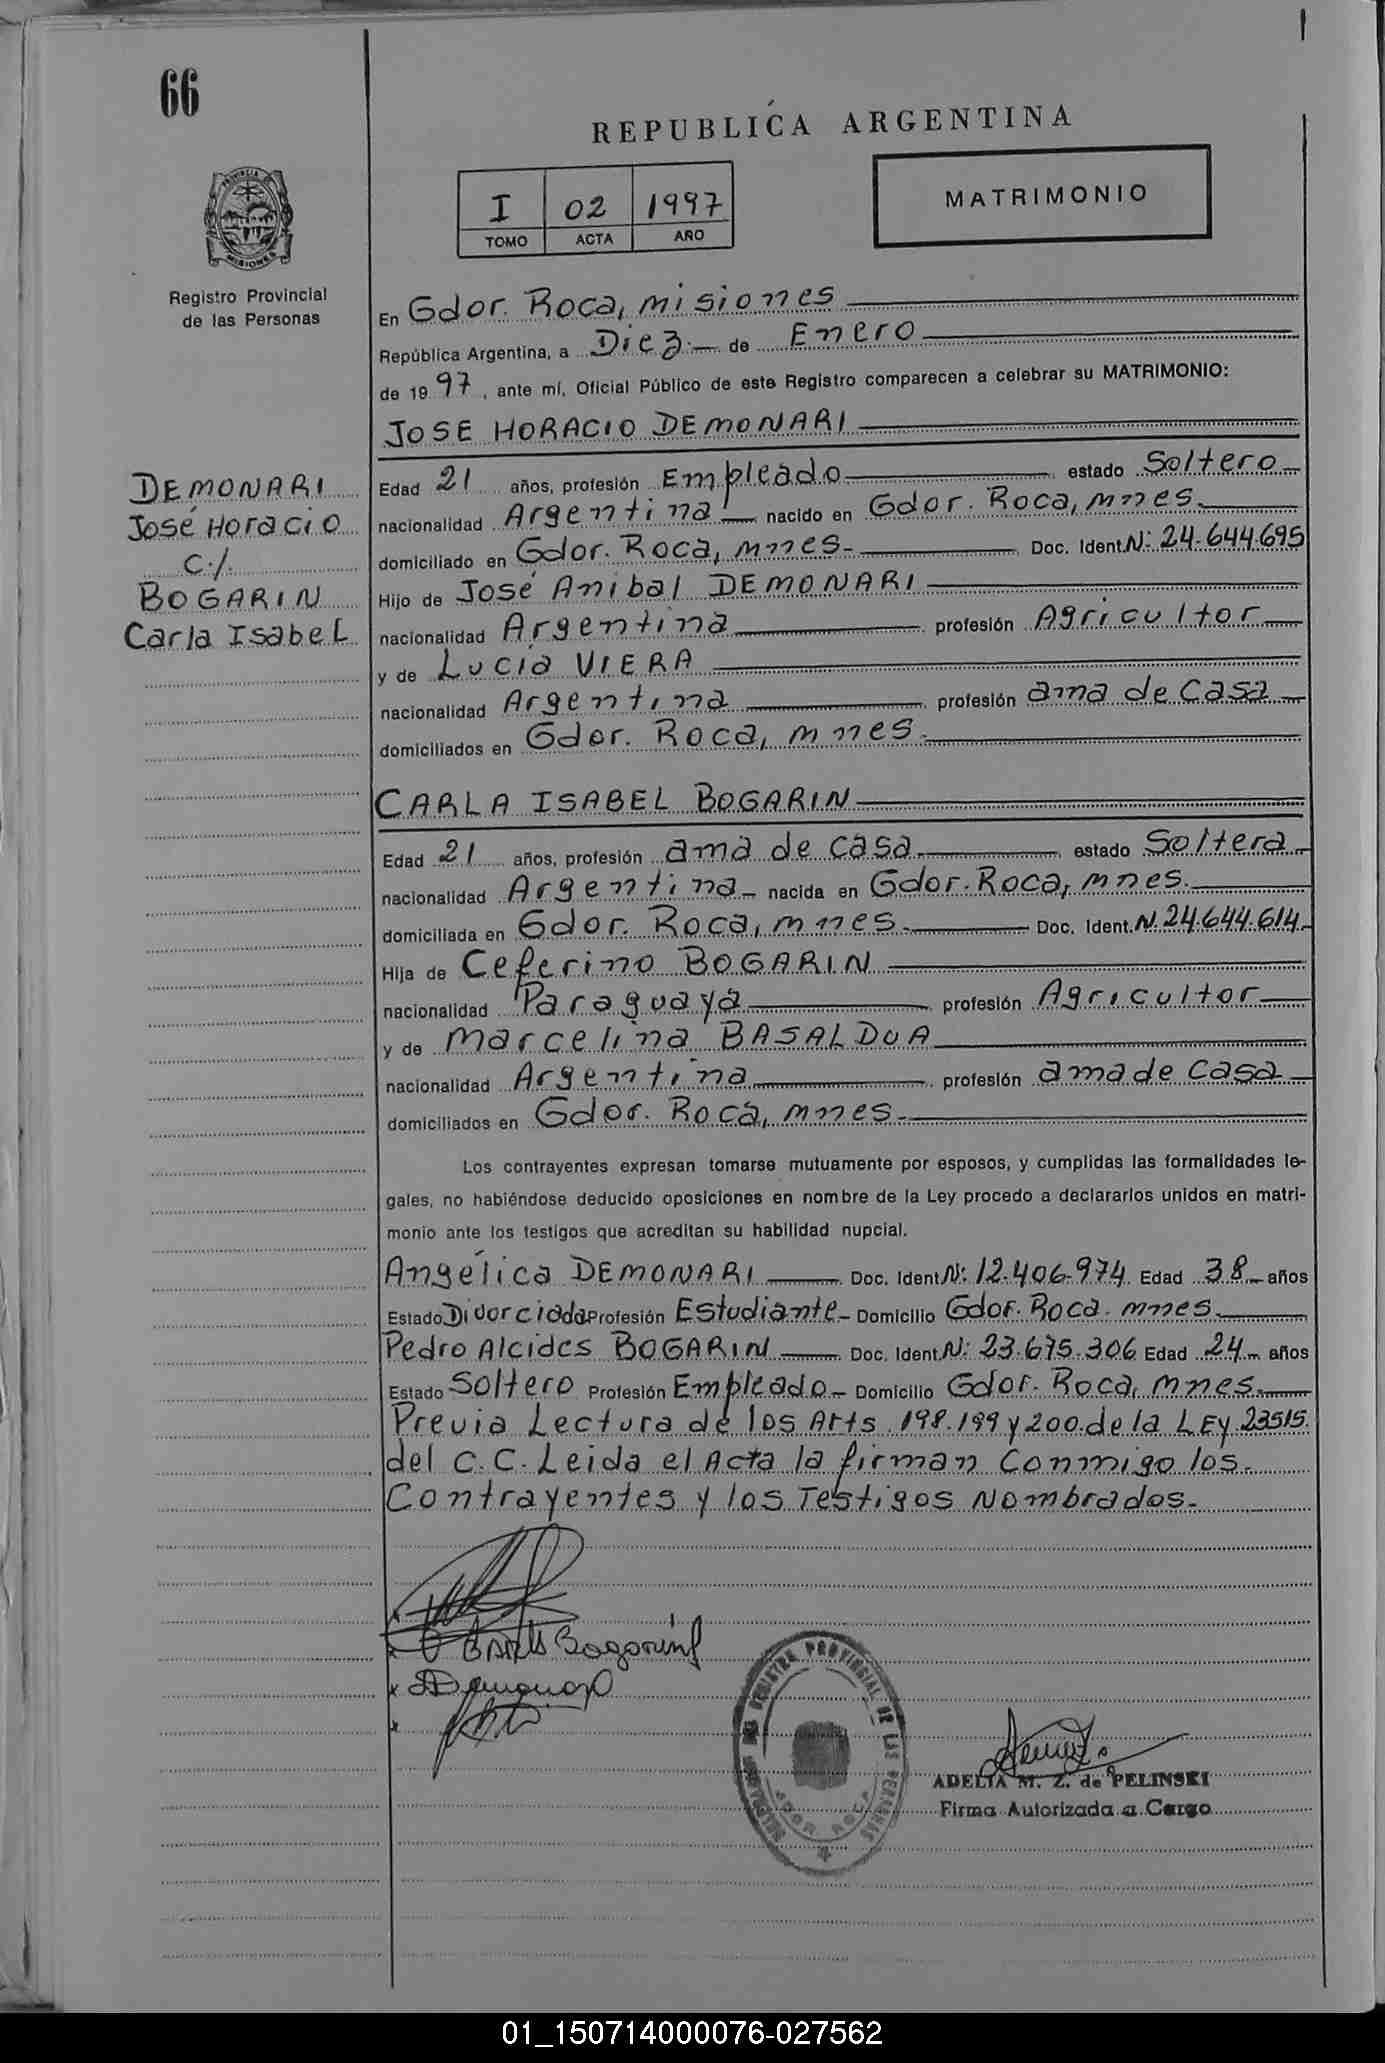 66
REPUBLICA ARGENTINA
I 02 1997
TOMO ACTA AÑO
MATRIMONIO
PROVINCIA
MISIONES
Registro Provincial
de las Personas
En Gdor. Roca, misiones
República Argentina, a Diez.- de Enero
de 19 97, ante mí, Oficial Público de este Registro comparecen a celebrar su MATRIMONIO:
JOSE HORACIO DEMONARI
DEMONARI
José Horacio
C./.
BOGARIN
Carla Isabel
Edad 21 años, profesión Empleado estado Soltero
nacionalidad Argentina nacido en Gdor. Roca, mnes.
domiciliado en Gdor. Roca, mnes- Doc. Ident. Nº: 24.644.695
Hijo de José Anibal DEMONARI
nacionalidad Argentina profesión Agricultor
y de Lucia VIERA
nacionalidad Argentina profesión ama de casa
domiciliados en Gdor. Roca, mnes.
CARLA ISABEL BOGARIN
Edad 21 años, profesión ama de casa. estado Soltera
nacionalidad Argentina nacida en Gdor. Roca, mnes.
domiciliada en Gdor. Roca, mnes. Doc. Ident. Nº 24.644.614.
Hija de Ceferino BOGARIN
nacionalidad Paraguaya profesión Agricultor
y de marcelina BASALDUA
nacionalidad Argentina profesión ama de casa
domiciliados en Gdor. Roca, mnes.
Los contrayentes expresan tomarse mutuamente por esposos, y cumplidas las formalidades le-
gales, no habiéndose deducido oposiciones en nombre de la Ley procedo a declararlos unidos en matri-
monio ante los testigos que acreditan su habilidad nupcial.
Angélica DEMONARI Doc. Ident. Nº: 12.406.974 Edad 38 años
Estado Divorciada Profesión Estudiante Domicilio Gdor. Roca. mnes.
Pedro Alcides BOGARIN Doc. Ident. Nº: 23.675.306 Edad 24 años
Estado Soltero Profesión Empleado Domicilio Gdor. Roca, mnes.
Previa Lectura de los Arts. 198.199 y 200. de la LEY 23515.
del C.C. Leida el Acta la firman Conmigo los.
Contrayentes y los Testigos Nombrados.
Carla Bogarin
REGISTRO PROVINCIAL DE LAS PERSONAS
GDOR. ROCA
ADELIA M. Z. de PELINSKI
Firma Autorizada a Cargo
01_150714000076-027562